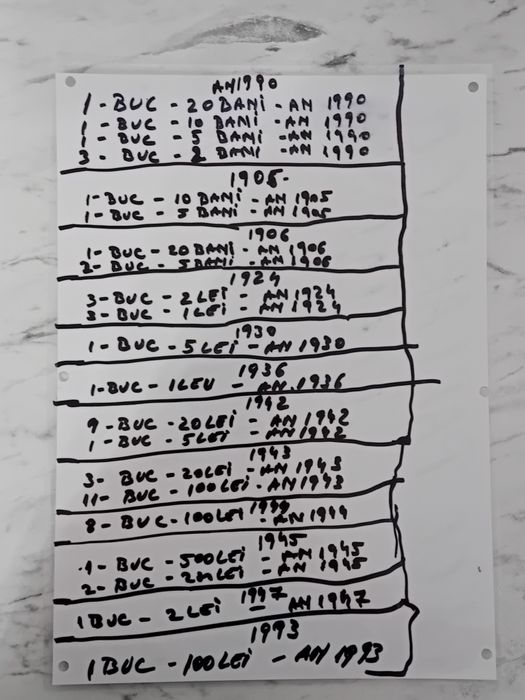 AN 1990
1 - BUC - 20 BANi - AN 1990
1 - BUC - 10 BANi - AN 1990
1 - BUC - 5 BANi - AN 1990
3 - BUC - 2 BANi - AN 1990
1905-
1- BUC - 10 BANi - AN 1905
1- BUC - 5 BANi - AN 1905
1906
1- BUC - 20 BANi - AN 1906
2- BUC - 5 BANi - AN 1906
1924
3-BUC - 2 LEi - AN 1924
3-BUC - 1 LEi - AN 1924
1930
1 - BUC - 5 LEi - AN 1930
1936
1-BUC - 1 LEU - AN.1936
1942
9-BUC - 20 LEi - AN 1942
1 - BUC - 5 LEi - AN 1942
1943
3- BUC - 20 LEi - AN 1943
11- BUC - 100 LEi - AN 1943
1944
8- BUC - 100 LEi - AN 1944
1945
1- BUC - 500 LEi - AN 1945
2- BUC - LEi - AN 1945
1947
1 BUC - 2 LEi - AN 1947
1993
1 BUC - 100 LEi - AN 1993